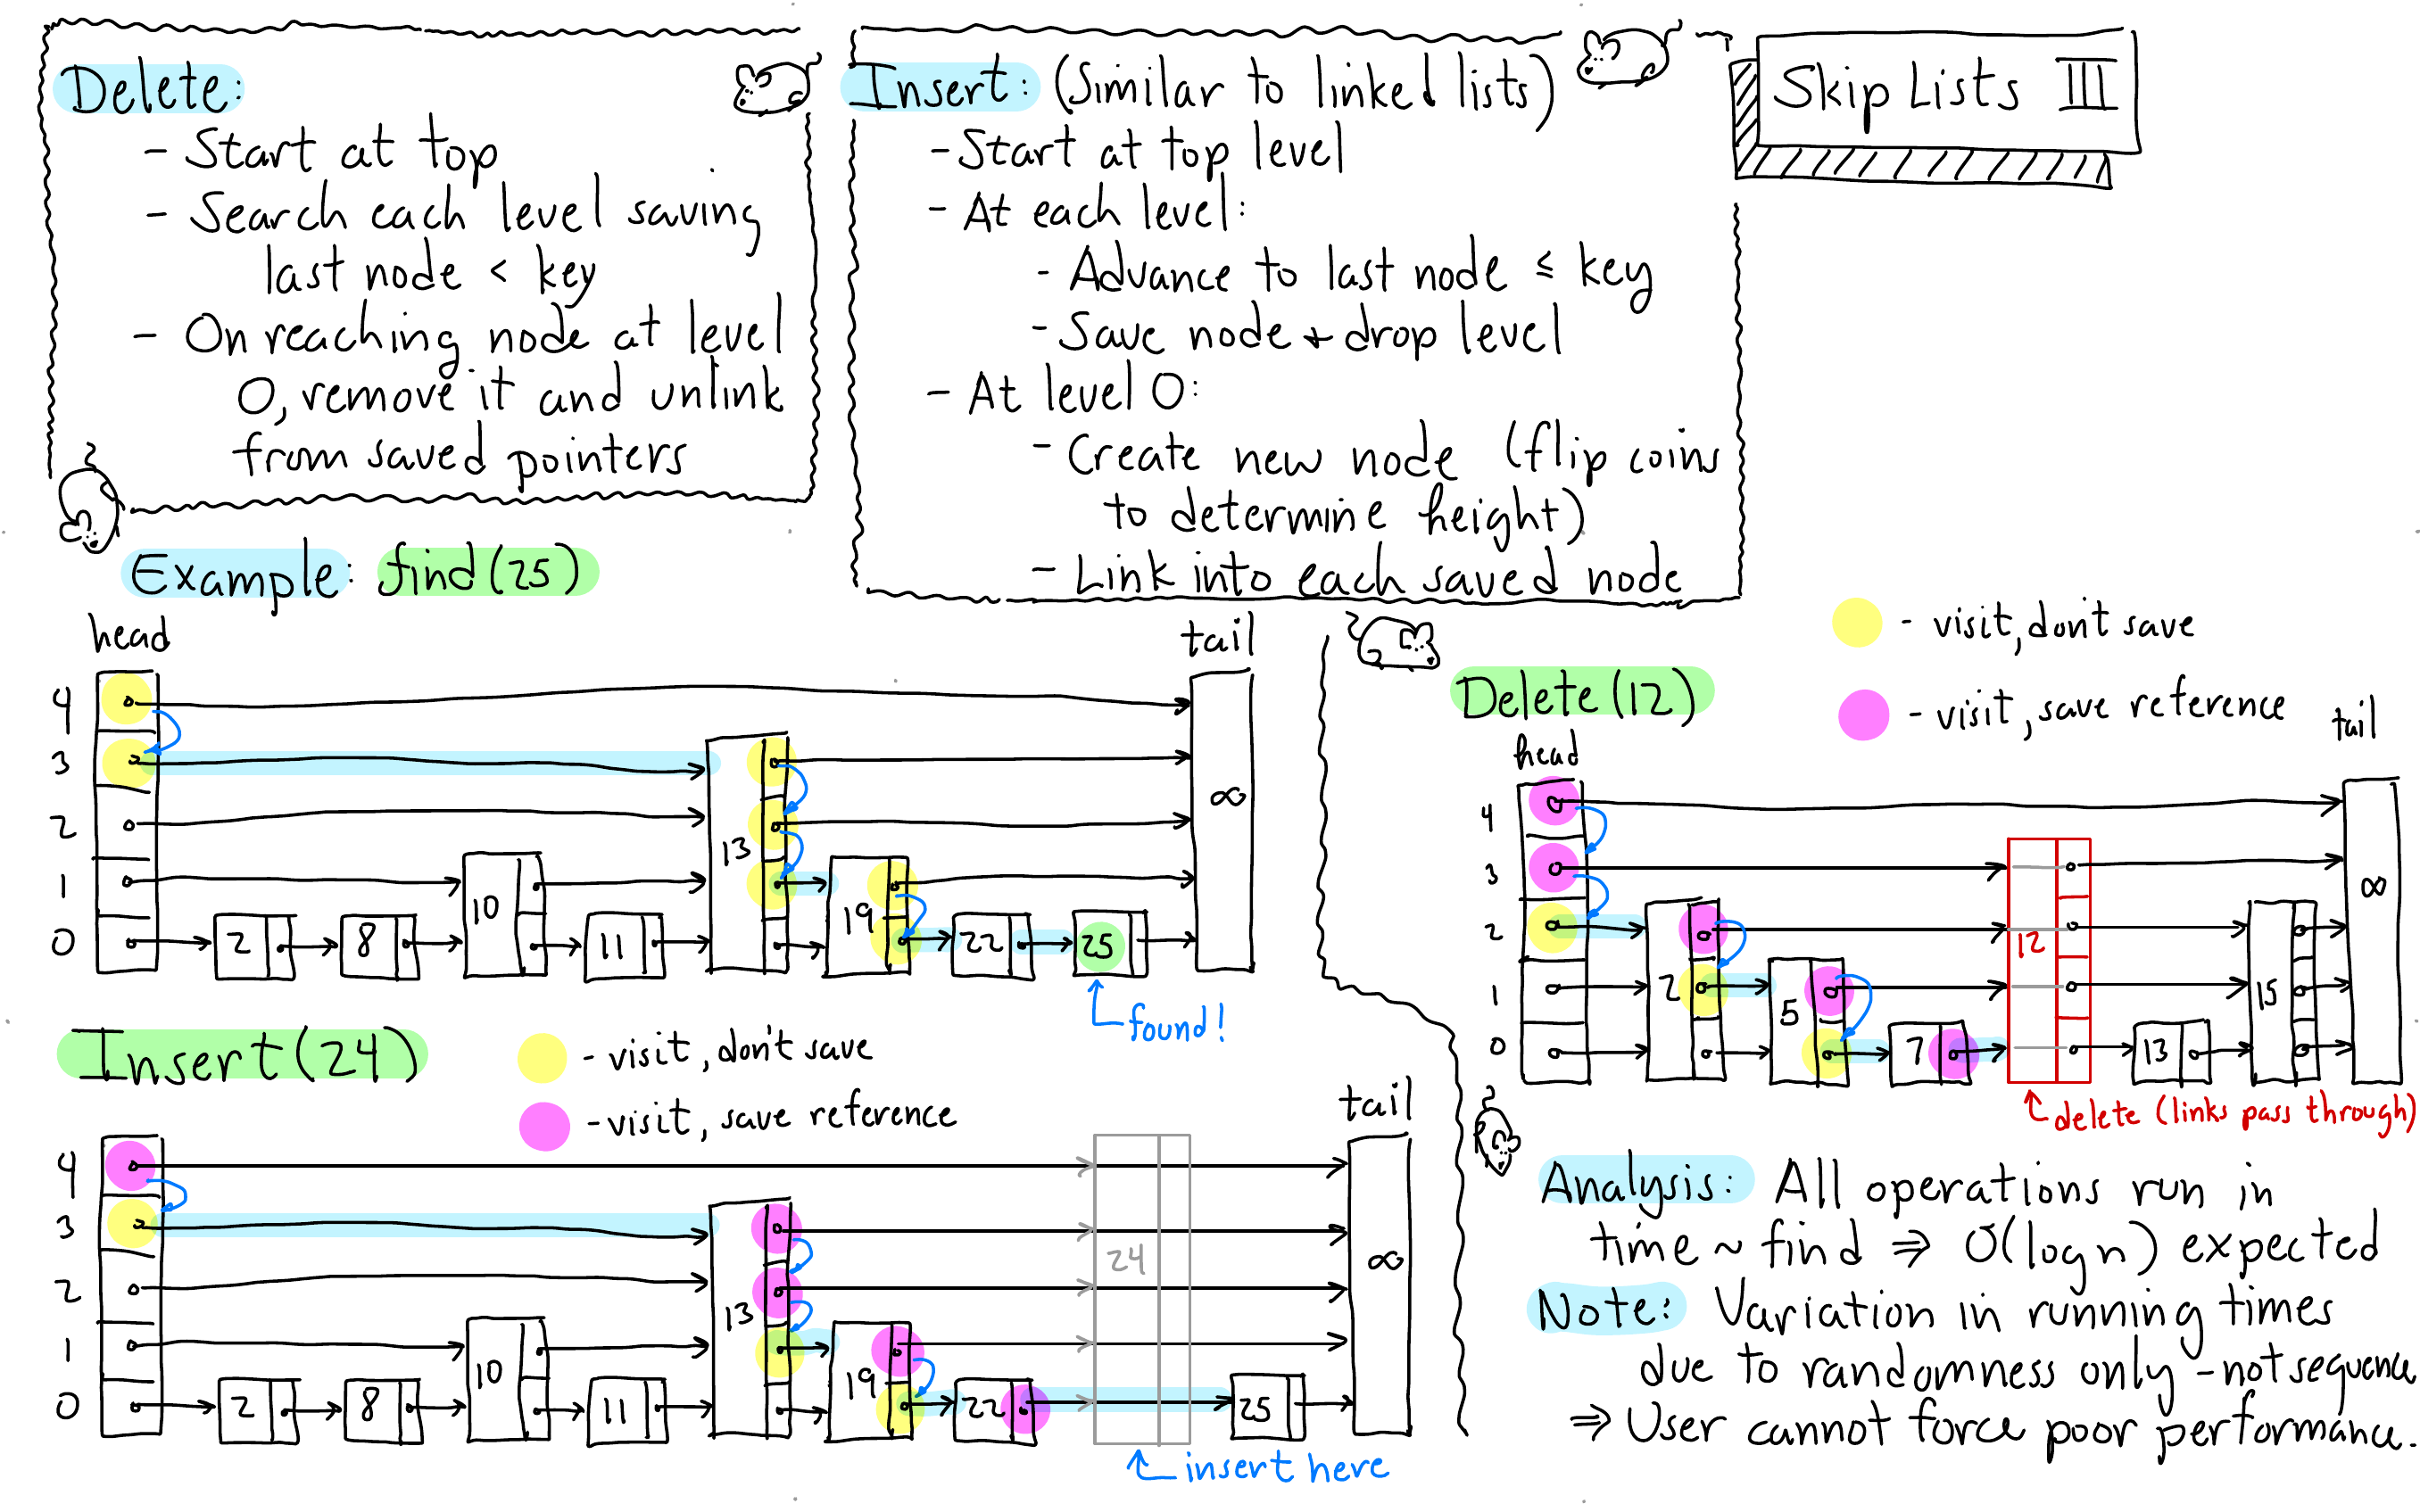 Skip Lists III
Delete:
- Start at top
- Search each level saving
last node < key
- On reaching node at level
0, remove it and unlink
from saved pointers
Insert: (Similar to linked lists)
- Start at top level
- At each level:
- Advance to last node ≤ key
- Save node + drop level
- At level 0:
- Create new node (flip coins
to determine height)
- Link into each saved node
Example: find(25)
head
tail
4
3
2
1
0
2
8
10
11
13
19
22
25
∞
found!
Insert(24)
- visit, don't save
- visit, save reference
tail
4
3
2
1
0
2
8
10
11
13
19
22
24
25
∞
insert here
- visit, dont save
- visit, save reference
Delete(12)
head
tail
4
3
2
1
0
2
5
7
12
13
15
∞
delete (links pass through)
Analysis: All operations run in
time ~ find ⇒ O(log n) expected
Note: Variation in running times
due to randomness only - not sequence
⇒ User cannot force poor performance.